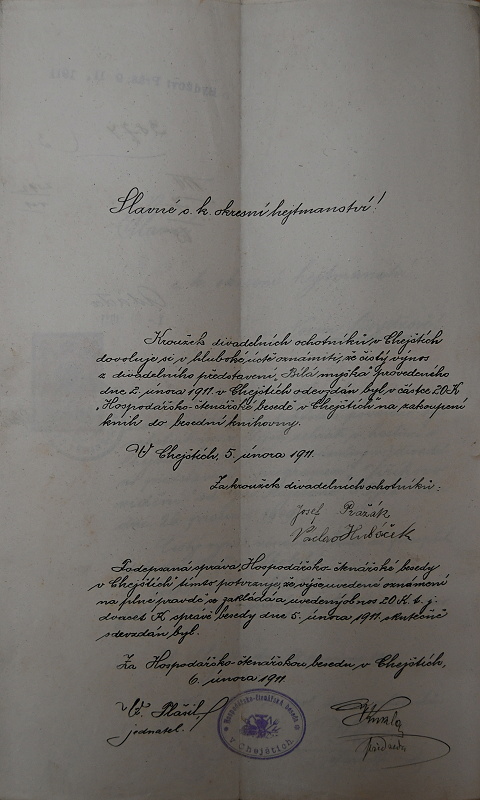 Slavné c. k. okresní hejtmanství!
Kroužek divadelních ochotníků v Chejštích
dovoluje si v hluboké úctě oznámiti, že čistý výnos
z divadelního představení „Bílá myška" provedeného
dne 2. února 1911. v Chejštích odevzdán byl v částce 20 K
„Hospodářsko-čtenářské besedě v Chejštích na zakoupení
knih do besední knihovny.
V Chejštích, 5. února 1911.
Za kroužek divadelních ochotníků:
Josef Pražák
Václav
Podepsaná správa „Hospodářsko-čtenářské besedy
v Chejštích" tímto potvrzuje, že výše uvedené oznámení
na plné pravdě se zakládá a uvedený obnos 20 K t. j.
dvacet K správě besedy dne 5. února 1911. skutečně
odevzdán byl.
Za Hospodářsko-čtenářskou besedu v Chejštích,
6. února 1911
Plašil
jednatel.
Hospodářsko-čtenářská beseda
v Chejštích.
předseda